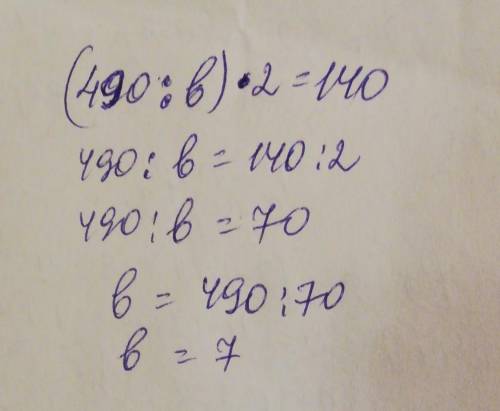 (490 : в) · 2 = 140
490 : в = 140 : 2
490 : в = 70
в = 490 : 70
в = 7